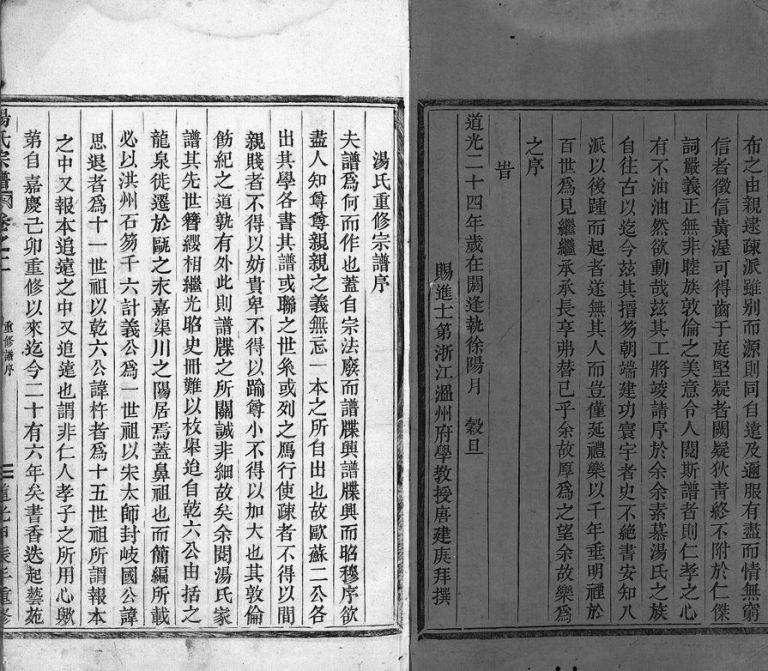 布之由親遠疎派雖别而源則同自遠及邇服有盡而情無窮
信者徵信黃渥可得齒于庭堅疑者闕疑狄青終不附於仁傑
詞嚴義正無非睦族敦倫之美意令人閱斯譜者則仁孝之心
有不油油然欲動哉兹其工將竣請序於余余素慕湯氏之族
自往古以迄今兹其搢笏朝端建功寰宇者史不絶書安知八
派以後踵而起者遂無其人而豈僅延禮樂以千年垂明禋於
百世爲見繼繼承承長享弗替已乎余故厚爲之望余故樂爲
之序
旹
道光二十四年歲在閼逢執徐陽月 穀旦
賜進士第浙江溫州府學教授唐建庚拜撰
湯氏重修宗譜序
夫譜爲何而作也蓋自宗法廢而譜牒興譜牒興而昭穆序欲
盡人知尊尊親親之義無忘一本之所自出也故歐蘇二公各
出其學各書其譜或聯之世系或列之鴈行使疎者不得以間
親賤者不得以妨貴卑不得以踰尊小不得以加大也其敦倫
飭紀之道孰有外此則譜牒之所關誠非細故矣余閱湯氏家
譜其先世簪纓相繼光昭史冊難以枚舉迨自乾六公由括之
龍泉徙遷於甌之永嘉渠川之陽居焉蓋鼻祖也而簡編所載
必以洪州石笏千六計義公爲一世祖以宋太師封岐國公諱
思退者爲十一世祖以乾六公諱杵者爲十五世祖所謂報本
之中又報本追遠之中又追遠也謂非仁人孝子之所用心歟
第自嘉慶己卯重修以來迄今二十有六年矣書香迭起藝苑
湯氏宗譜 卷之一 重修譜序 二 道光甲辰年重修